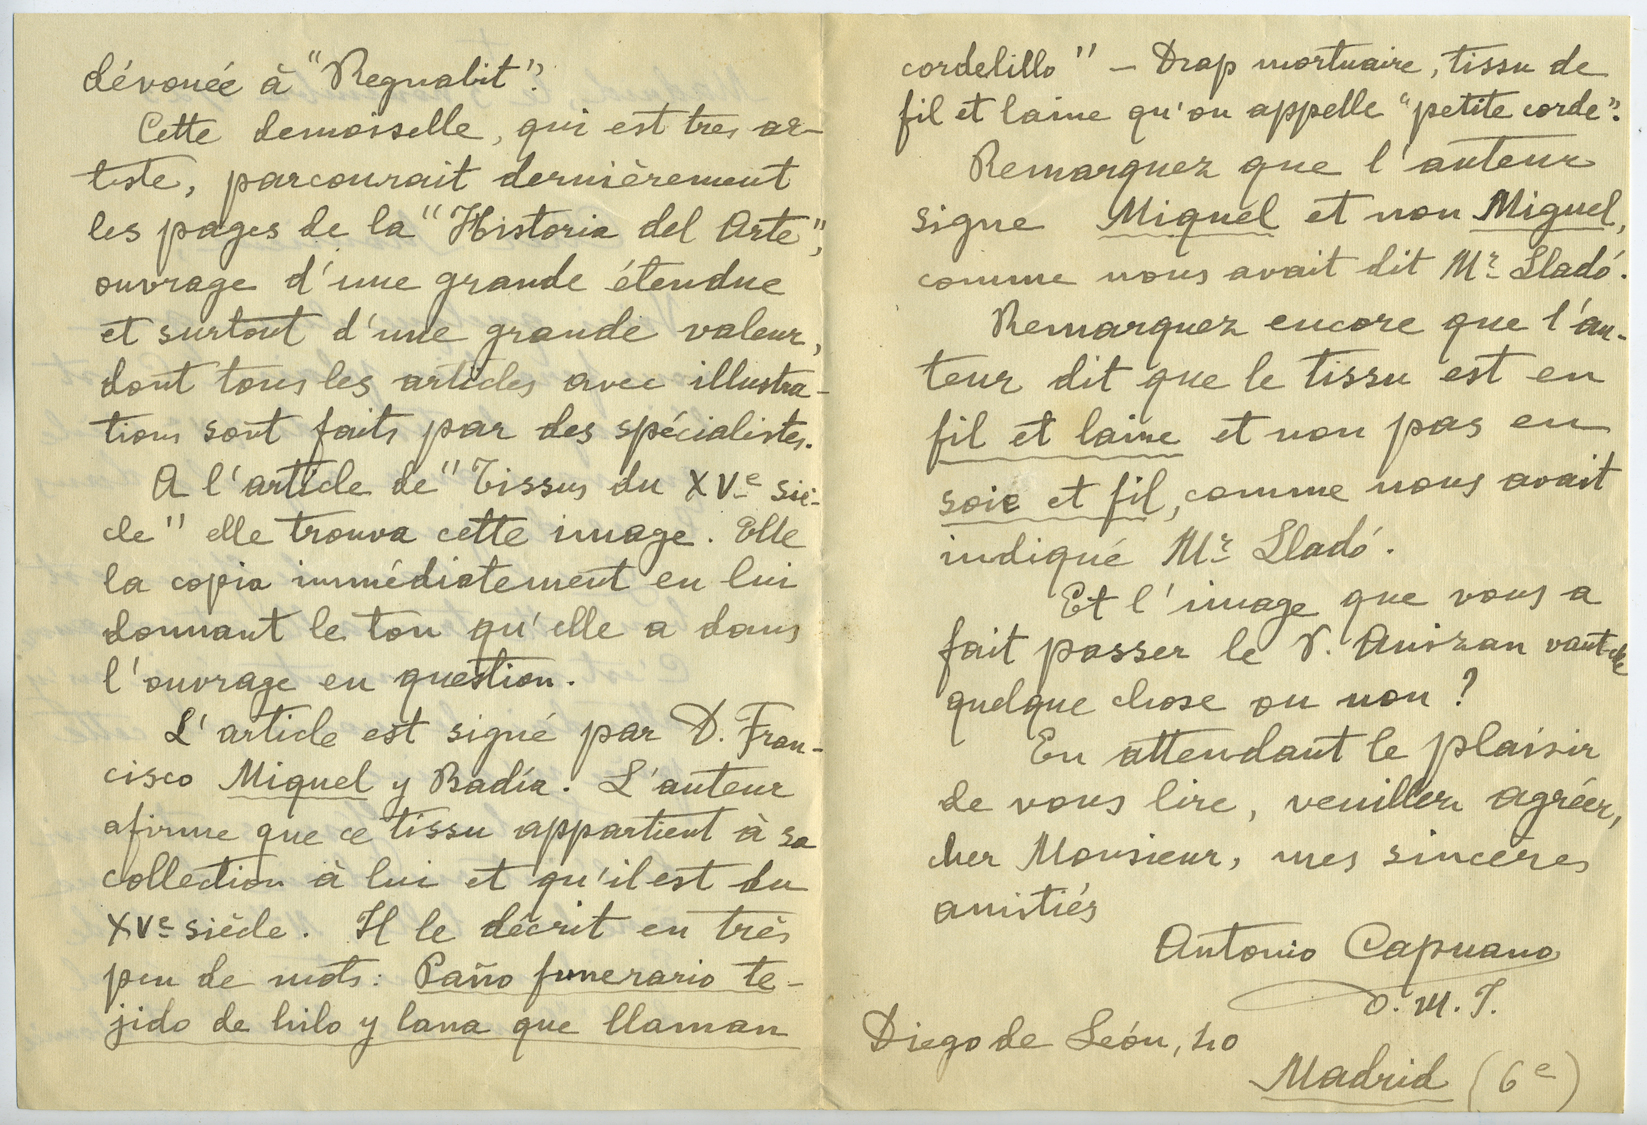 dévouée à "Regnabit".
Cette demoiselle, qui est tres ar-
tiste, parcourait dernièrement
les pages de la "Historia del Arte",
ouvrage d'une grande étendue
et surtout d'une grande valeur,
dont tous les articles avec illustra-
tions sont faits par des spécialistes.
A l'article de "Tissus du XVe siè-
cle" elle trouva cette image. Elle
la copia immédiatement en lui
donnant le ton qu'elle a dans
l'ouvrage en question.
L'article est signé par D. Fran-
cisco Miquel y Badía. L'auteur
afirme que ce tissu appartient à sa
collection à lui et qu'il est du
XVe siècle. Il le décrit en très
peu de mots: Paño funerario te-
jido de hilo y lana que llaman
cordelillo" — Drap mortuaire, tissu de
fil et laine qu'on appelle "petite corde".
Remarquez que l'auteur
signe Miquel et non Miguel,
comme nous avait dit Mr Lladó.
Remarquez encore que l'au-
teur dit que le tissu est en
fil et laine et non pas en
soie et fil, comme nous avait
indiqué Mr Lladó.
Et l'image que vous a
fait passer le P. Anizan vaut-elle
quelque chose ou non?
En attendant le plaisir
de vous lire, veuillez agréer,
cher Monsieur, mes sincères
amitiés
Antonio Capuano
O. M. I.
Diego de León, 40
Madrid (6e)